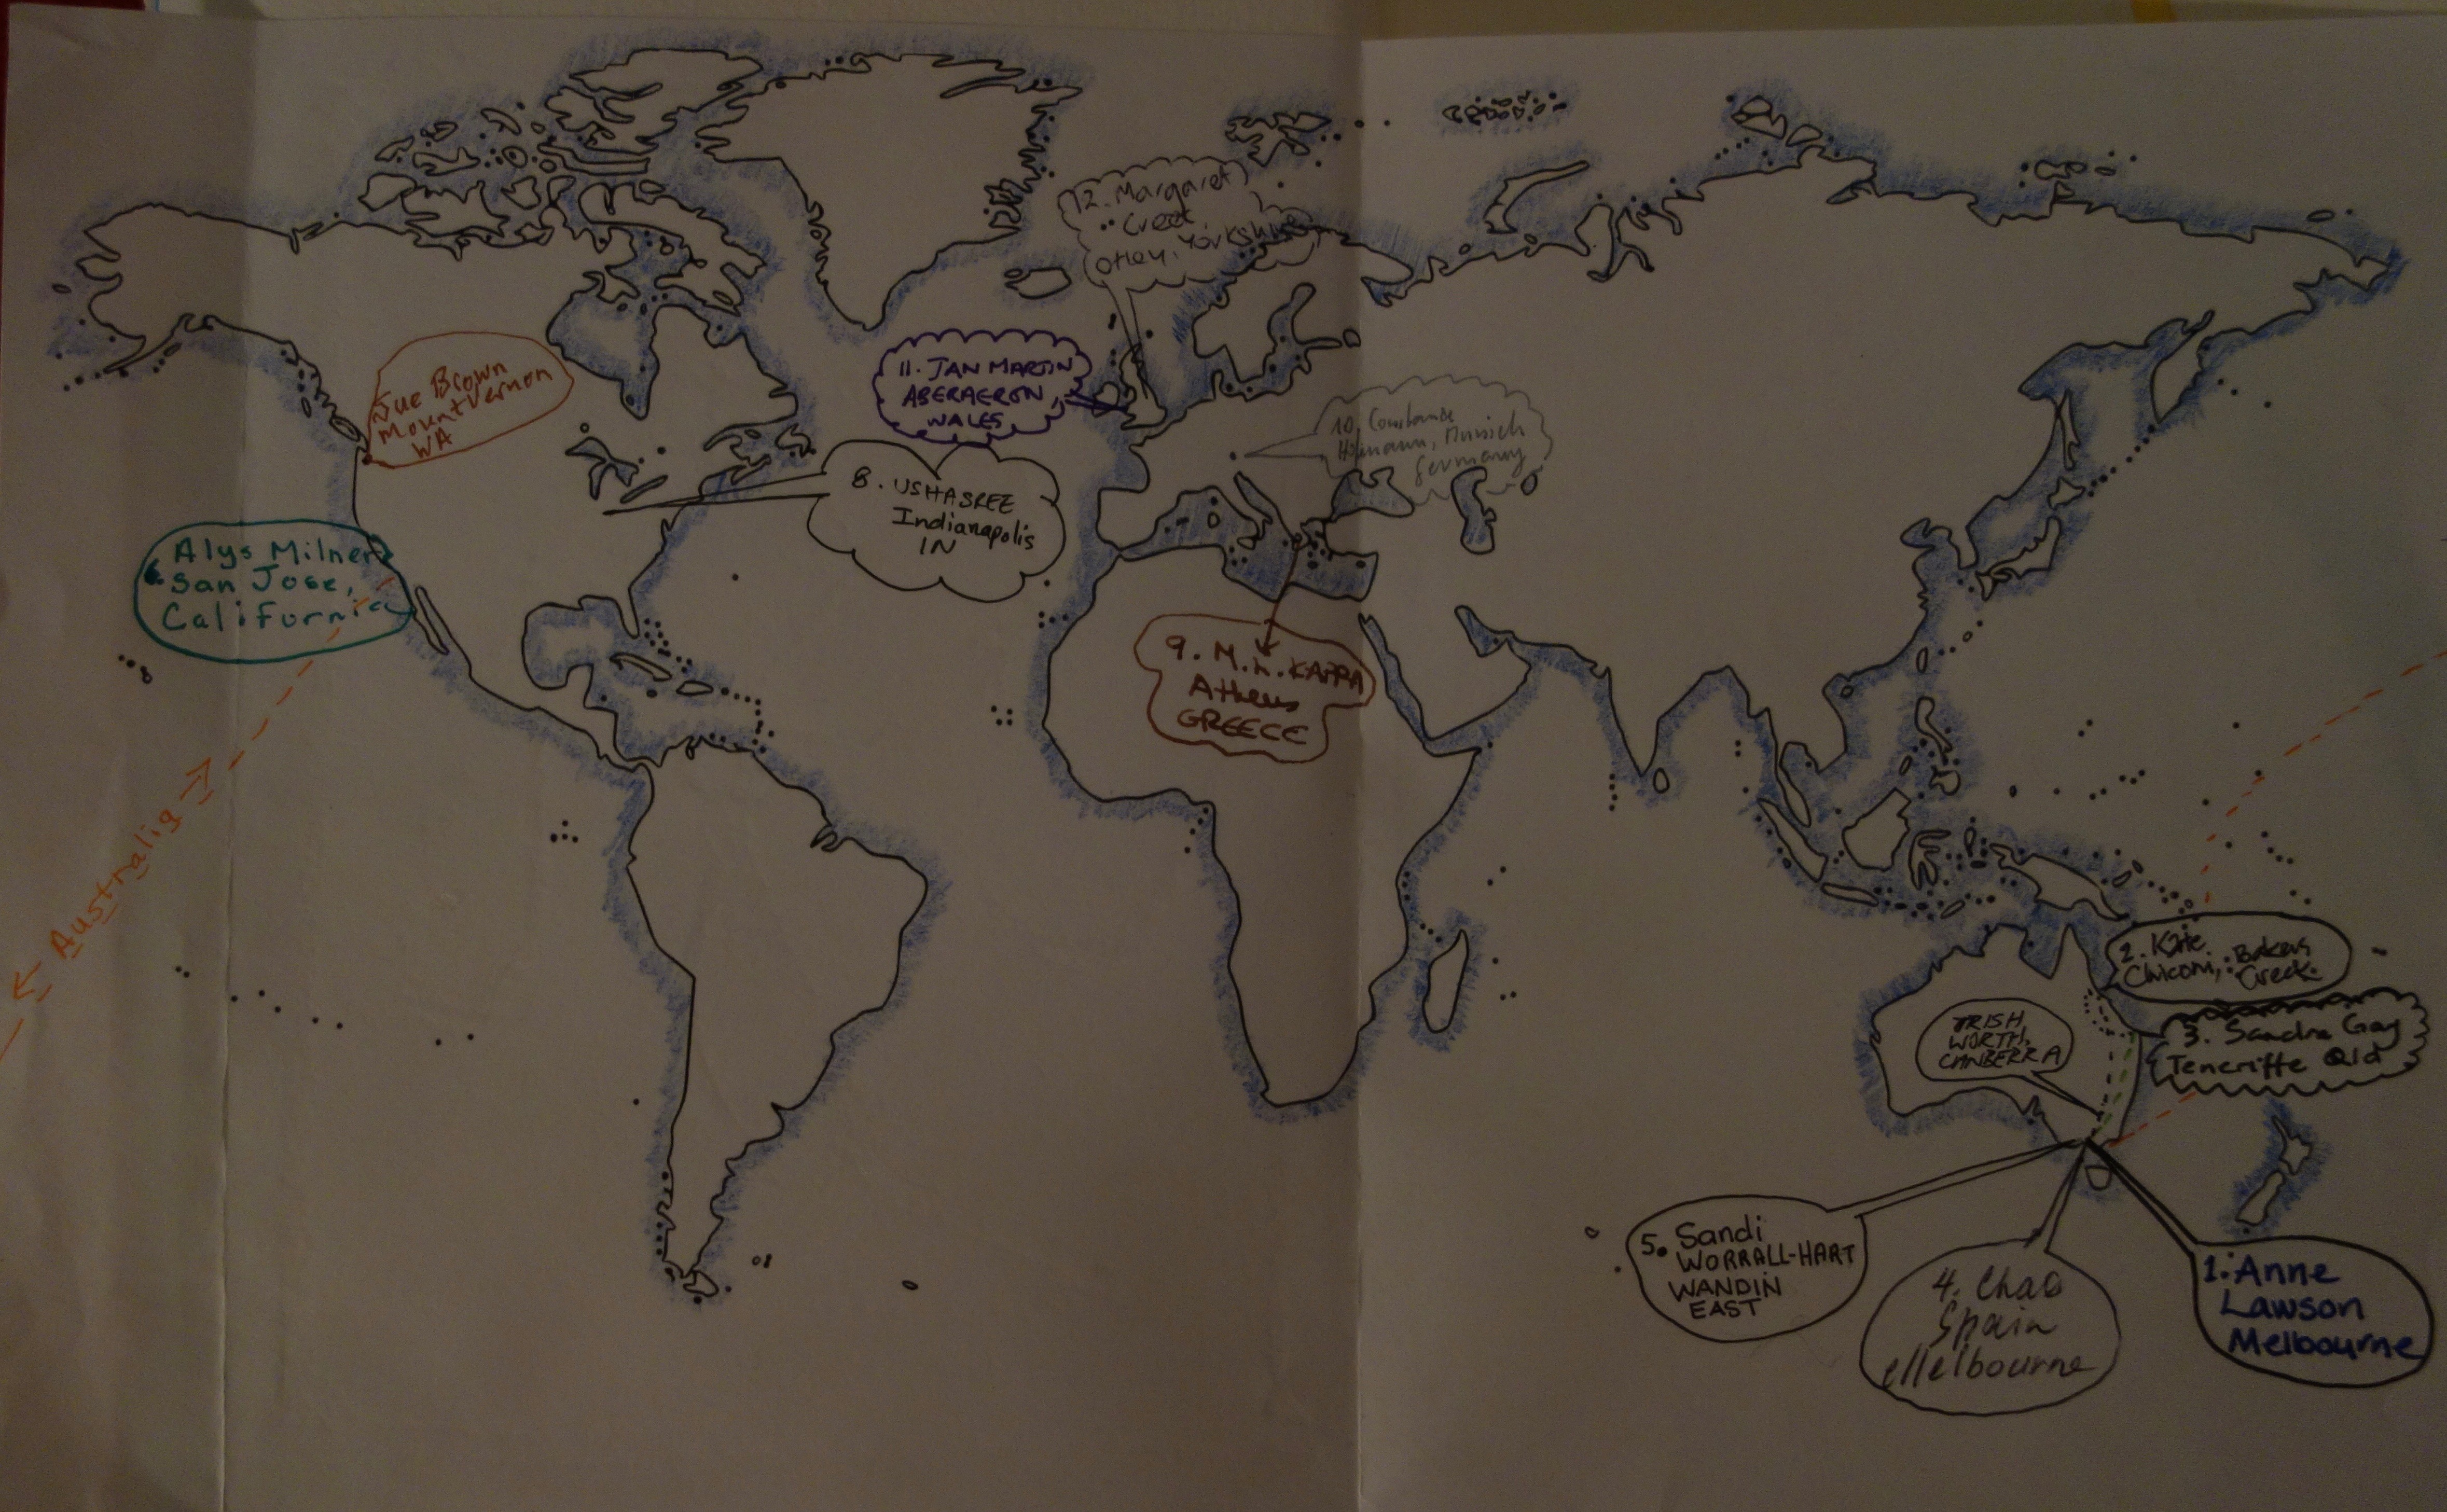 12. Margaret
Creet
Otley, Yorkshire
11. JAN MARTIN
ABERAERON,
WALES
Sue Brown
Mount Vernon
WA
10. Constanze
Munich
Germany
8. USHASREE
Indianapolis
IN
6. Alys Milner
San Jose,
California
9. M. K. KAPPA
Athens
GREECE
Australia
2. Kate
Chiconi, Bakers
Creek
3. Sandra Gay
Teneriffe Qld
TRISH
WORTH,
CANBERRA
5. Sandi
WORRALL-HART
WANDIN
EAST
4. Chas
Spain
Melbourne
1. Anne
Lawson
Melbourne